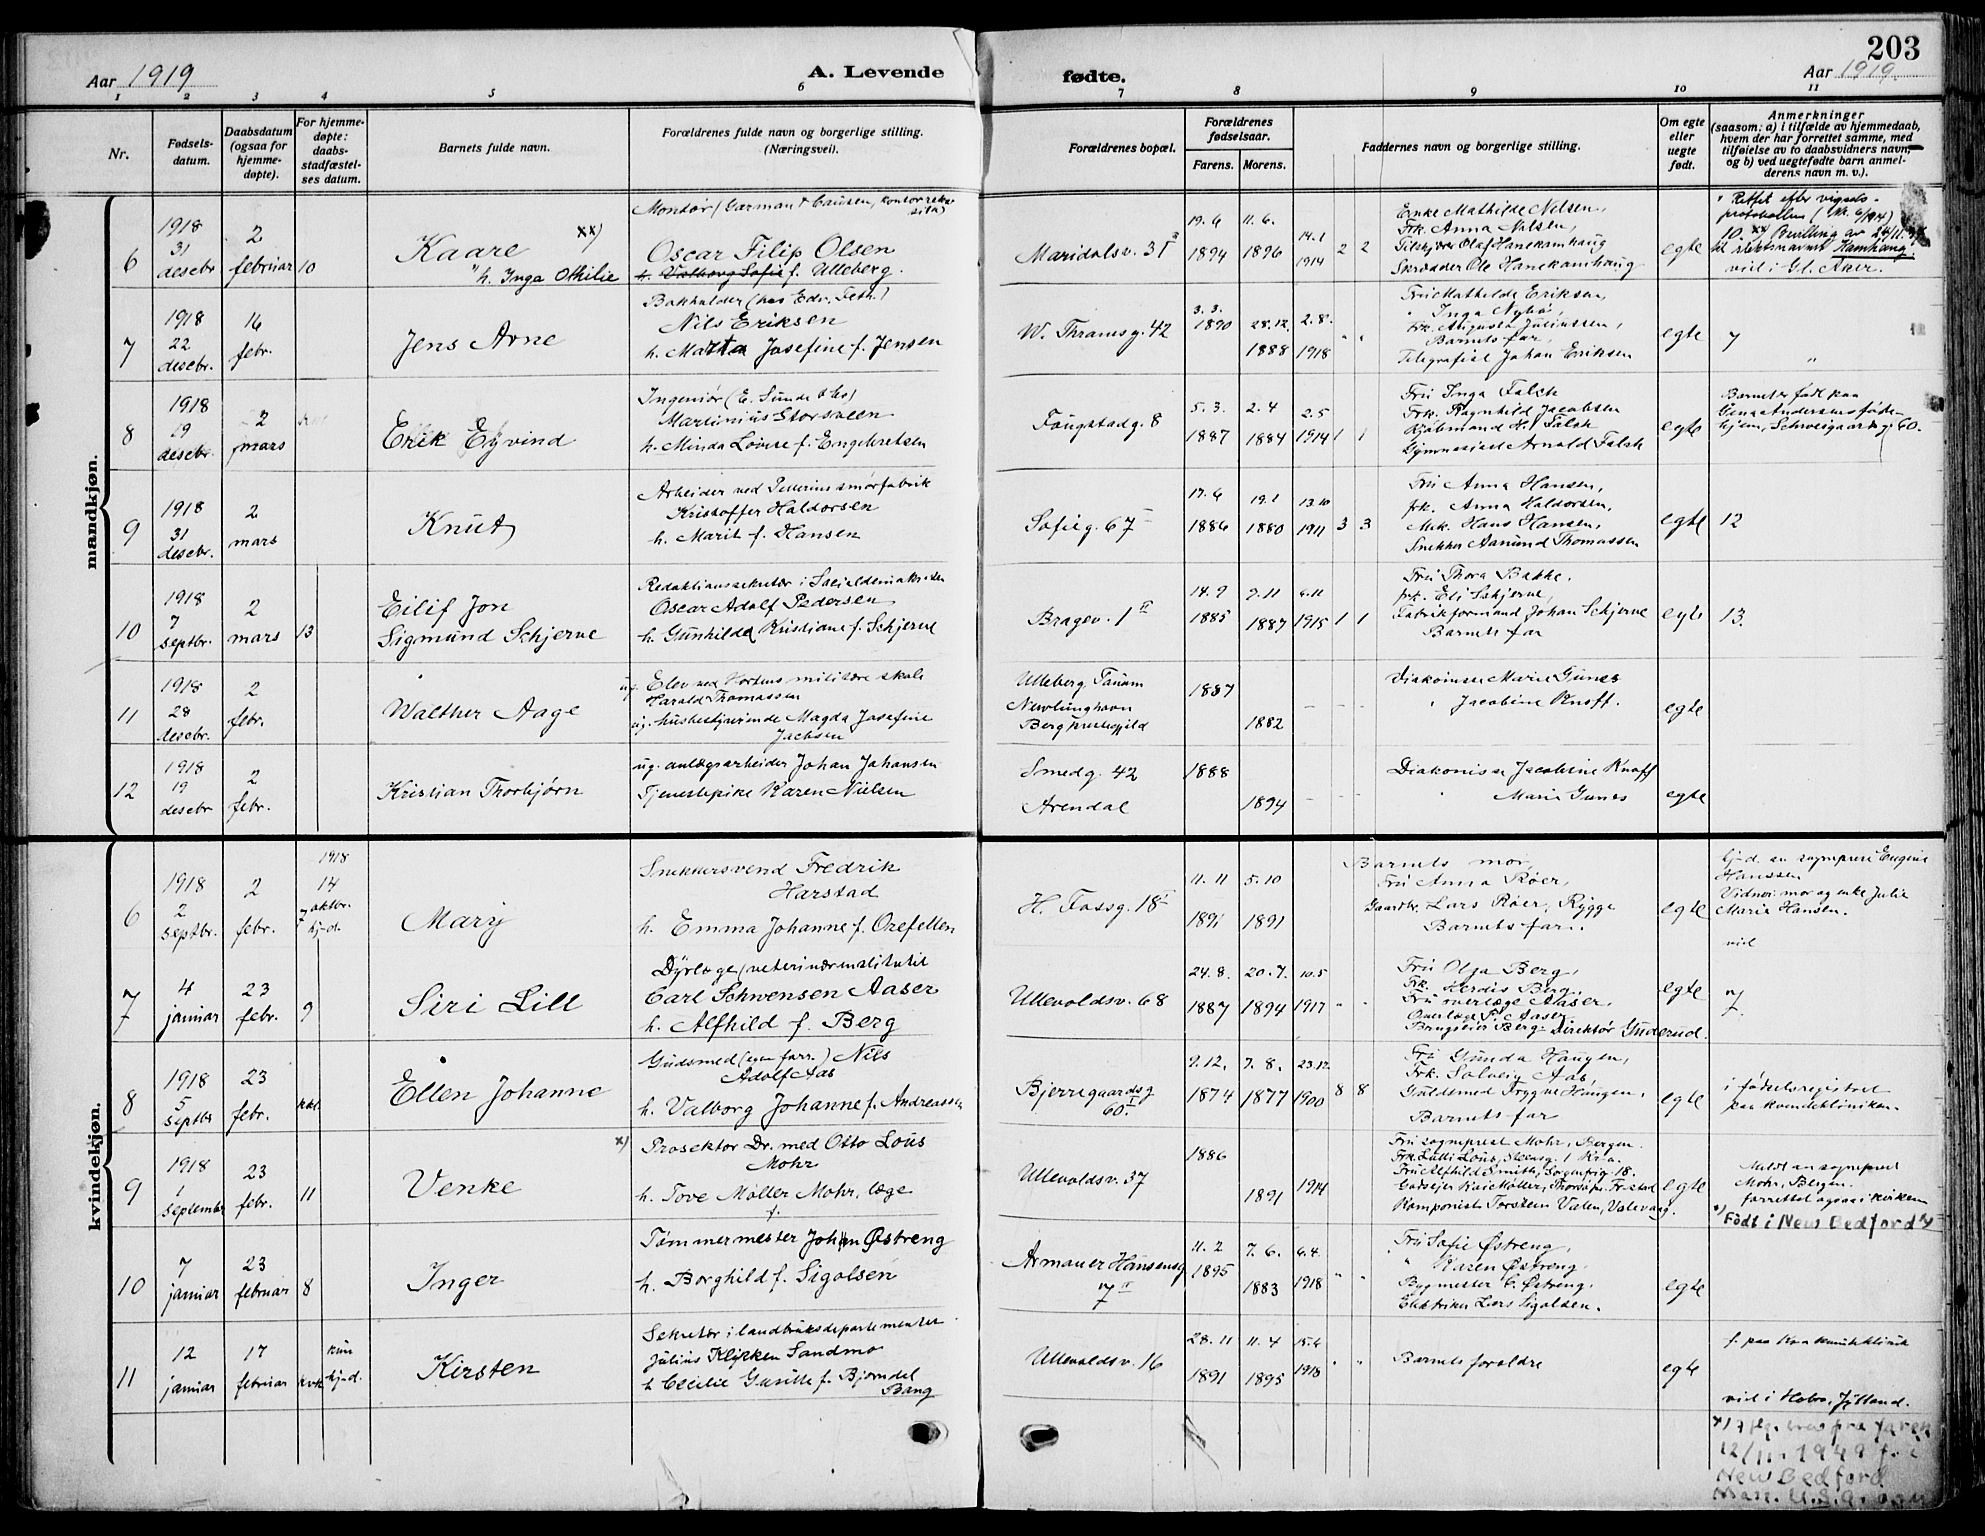 203
Aar 1919
A. Levende
fødte.
Aar 1919.
1 2 3 4 5 6 7 8 9 10 11
Nr.
Fødsels-
datum.
Daabsdatum
(ogsaa for
hjemme-
døpte).
For hjemme-
døpte:
daabs-
stadfæstel-
ses datum.
Barnets fulde navn.
Forældrenes fulde navn og borgerlige stilling.
(Næringsvei).
Forældrenes bopæl.
Forældrenes
fødselsaar.
Farens. Morens.
Faddernes navn og borgerlige stilling.
Om egte
eller
uegte
født.
Anmerkninger
(saasom: a) i tilfælde av hjemmedaab,
hvem der har forrettet samme, med
tilføielse av to daabsvidners navn,
og b) ved uegtefødte barn anmel-
derens navn m. v.).
mandkjøn.
6
1918
31
desebr
2
februar
10
Kaare xx)
" h. Inga Othilie
Oscar Filip Olsen
h. Valborg Sofie f. Ulleberg.
Maridalsv. 31
19.6
1894
11.6.
1896
14.1
1914
2 2
Enke Mathilde Nelsen,
Frk. Anna Nilsen,
Skrædder Ole Hanekamhaug
egte
" Rettet efter vigsels-
protokollen
vid i Gl. Aker.
7
1918
22
desebr.
16
febr.
Jens Arne
Bokholder
Nils Eriksen
h. Marta Josefine f. Jensen
W. Thranesg. 42
3.3.
1890
28.12.
1888
2.8.
1918
" "
Fru Mathilde Eriksen,
" Inga Nybø,
Frk. Augusta Juliussen,
Barnets far,
Telegrafist Johan Eriksen
egte
7
"
8
1918
19
desebr.
2
mars
Erik Eyvind
Ingeniør (E. Sunde & Co)
Martinius Storsveen
h. Minda Lovise f. Engebretsen
Fougstadg. 8
5.3.
1887
2.4
1884
2.5
1914
1 1
Fru Inga Falch
Frk. Ragnhild Jacobsen
Kjøbmand H. Falch
Gymnasiast Arnold Falch
egte
Barnet er født paa
hjem, Schweigaardsg. 60.
9
1918
31
desebr.
2
mars
Knut
Arbeider ved Pellerins smørfabrik
Kristoffer Haldorsen
h. Marit f. Hansen
Sofieg. 67
17.6
1886
19.1
1880
13.10
1911
3 3
Fru Anna Hansen,
frk. Anna Haldorsen
Mek. Hans Hansen,
Snekker Aanund Thomassen
egte
12
10
1918
7
septbr.
2
mars
13
Eilif Jon
Sigmund Schjerve
Redaktionssekretær i Socialdemokraten
Oscar Adolf Pedersen
h. Gunhilda Kristiane f. Schjerve
Bragev. 1 II
14.9
1885
9.11
1887
6.11
1915
1 1
Fru Thora Bakke,
frk. Eli Schjerve,
Fabrikformand Johan Schjerve
Barnets far
egte
13.
11
1918
28
desebr.
2
febr.
Walther Aage
ug. Elev ved Hortens militære skole
Harald Thomassen
ug. husbestyrerinde Magda Josefine
Jacobsen
Ulleberg, Tanum
Nevlunghavn
Berg prestegjeld
1887
1882
- - -
Diakonisse Marie Gunes
" Jacobine Knoff.
egte
12
1918
19
desebr
2
febr.
Kristian Thorbjørn
ug. anlægsarbeider Johan Johansen
Tjenestepike Karen Nielsen
Smedg. 42
Arendal
1888
1894
- - -
Diakonisse Jacobine Knoff
" Marie Gunes
egte
kvindekjøn.
6
1918
2
septbr.
2
febr.
1918
14
oktbr.
hj.d.
7
Mary
Snekkersvend Fredrik
Harstad
h. Emma Johanne f. Orefellen
H. Fossg. 18
11.11
1891
5.10
1891
Barnets mor,
Fru Anna Røer,
Gaardbr. Lars Røer, Rygge
Barnets far.
egte
hj.d. av sogneprest Eugene
Hanssen
Vidner: mor og enke Julie
Marie Hansen.
vid
7
4
januar
23
febr.
9
Siri Lill
Dyrlæge (veterinærinstitutet
Carl Schwensen Aaser
h. Alfhild f. Berg
Ullevoldsv. 68
24.8.
1887
20.7.
1894
10.5
1917
" "
Fru Olga Berg,
Frk. Herdis Berg,
Fru overlæge Aaser.
Overlæge P. Aaser
Brugseier Berg. Direktør Gunderud.
egte
7
8
1918
5
septbr
23
febr.
Ellen Johanne
Guldsmed (egen forr.) Nils
Adolf Aas
h. Valborg Johanne f. Andreassen
Bjerregaardsg
60 I
9.12.
1874
7.8.
1877
23.12
1900
8 8
Fru Gunda Haugen,
Frk. Solveig Aas,
Guldsmed Trygve Haugen,
Barnets far
egte
i fødselsregistret
paa kvindeklinikken.
9
1918
1
september
23
febr.
11
Venke x)
Prosektor Dr. med Otto Lous
Mohr
h. Tove Møller Mohr, læge
f.
Ullevoldsv. 37
1886
1891
1914
Fru sogneprest Mohr, Bergen.
Frk. Lalli Lous, Steensg. 1 Kr.a.
Fru Alfhild Smith, Sorgenfrig. 18.
Godseier Kai Møller, Thorsø pr. Fr.stad
Komponist Farstein Valen, Valevaag.
egte
Meldt av sogneprest
Mohr, Bergen.
forrettet ogsaa i kirken
x) Født i New Bedford
10
7
januar
23
februar
8
Inger
Tømmermester Johan Østreng
h. Borghild f. Sigolsen
Armauer Hansensg
7 II
11.2
1895
7.6.
1883
6.4.
1918
" "
Fru Sofie Østreng,
" Karen Østreng.
Bygmester C. Østreng,
Elektriker Lars Sigolsen.
egte
11
12
januar
17
februar
kun
hj.d.
Kirsten
Sekretær i landbruksdepartementet
Julius Klykken Sandmo
h Cecilie Gunille f. Bjørndel
Bang
Ullevoldsv. 16
28.11
1891
11.4
1895
15.6
1918
" "
Barnets forældre
egte
f. paa Kra kvindeklinik
vid i Hobro, Jylland.
12/11. 1949
New Bedford
Mass. U.S.A.